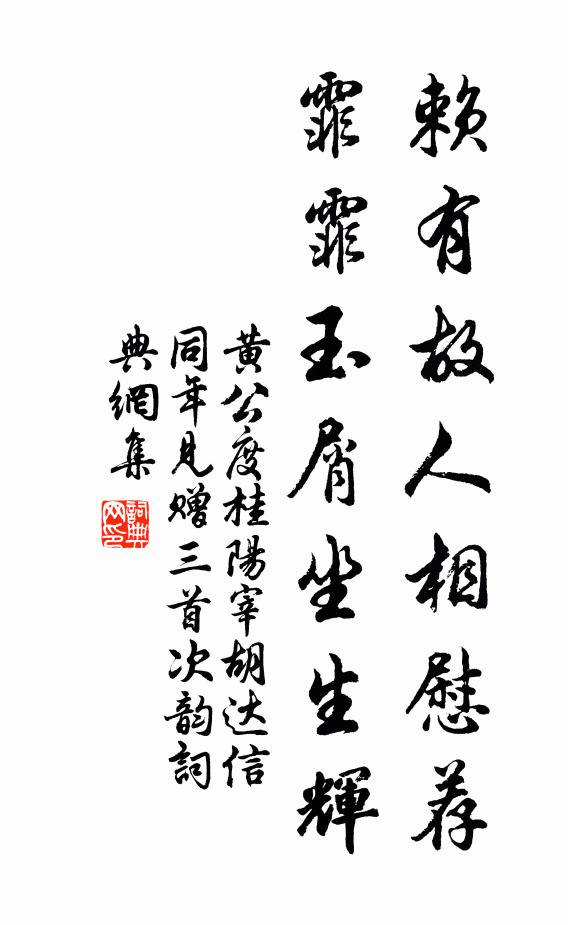 賴有故人相慰荐
霏霏玉屑坐生輝
黃公度桂陽宰胡达信
同年見贈三首次韵詞
典網集
詞典
网印